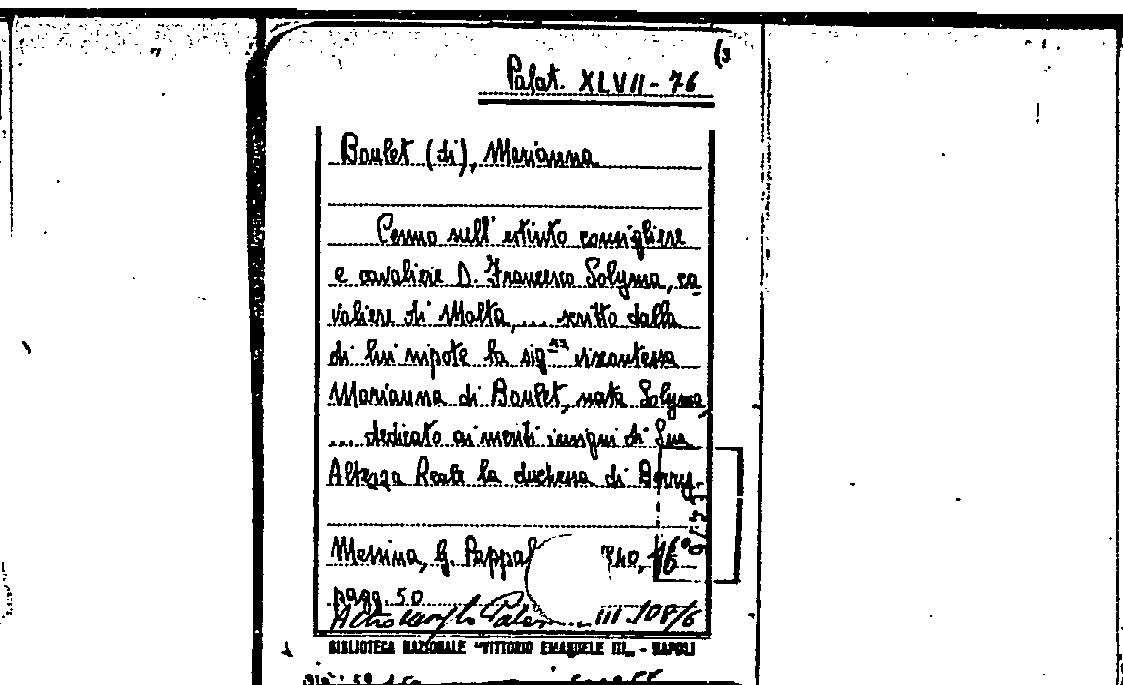 Palat. XLVII - 76
Boulet (di), Marianna
Cenno sull' estinto consigliere
e cavaliere D. Francesco Solyma, ca-
valiere di Malta, ... scritto dalla
di lui nipote la sig.ra viscontessa
Marianna di Boulet, nata Solyma
... dedicato ai meriti insigni di Sua
Altezza Reale la duchessa di Berry.
Messina, G. Pappal 16°
pagg. 50
Palat. III 108/6
BIBLIOTECA NAZIONALE "VITTORIO EMANUELE III" - NAPOLI